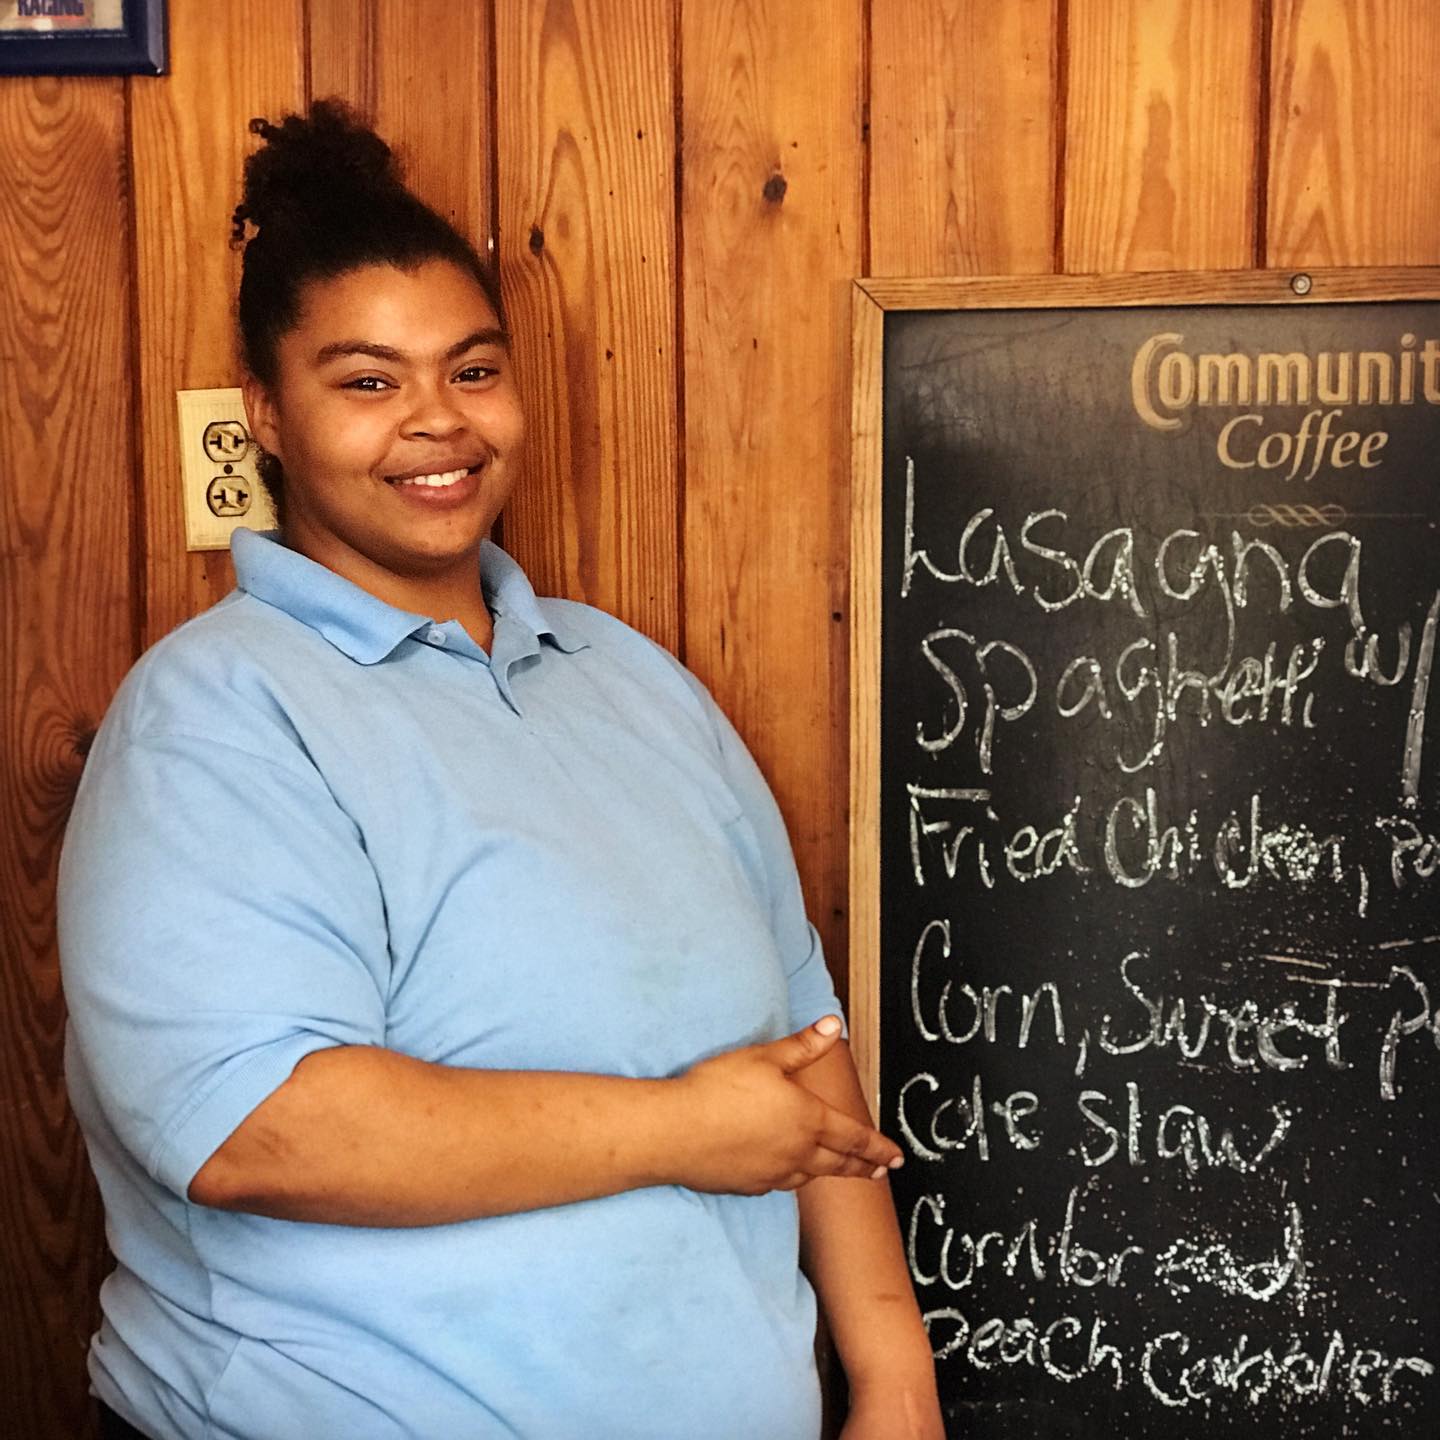 RACING
Communit
Coffee
Lasagna
Spaghetti w/
Fried Chicken, Po
Corn, Sweet P
Cole slaw
Cornbread
Peach Cobbler